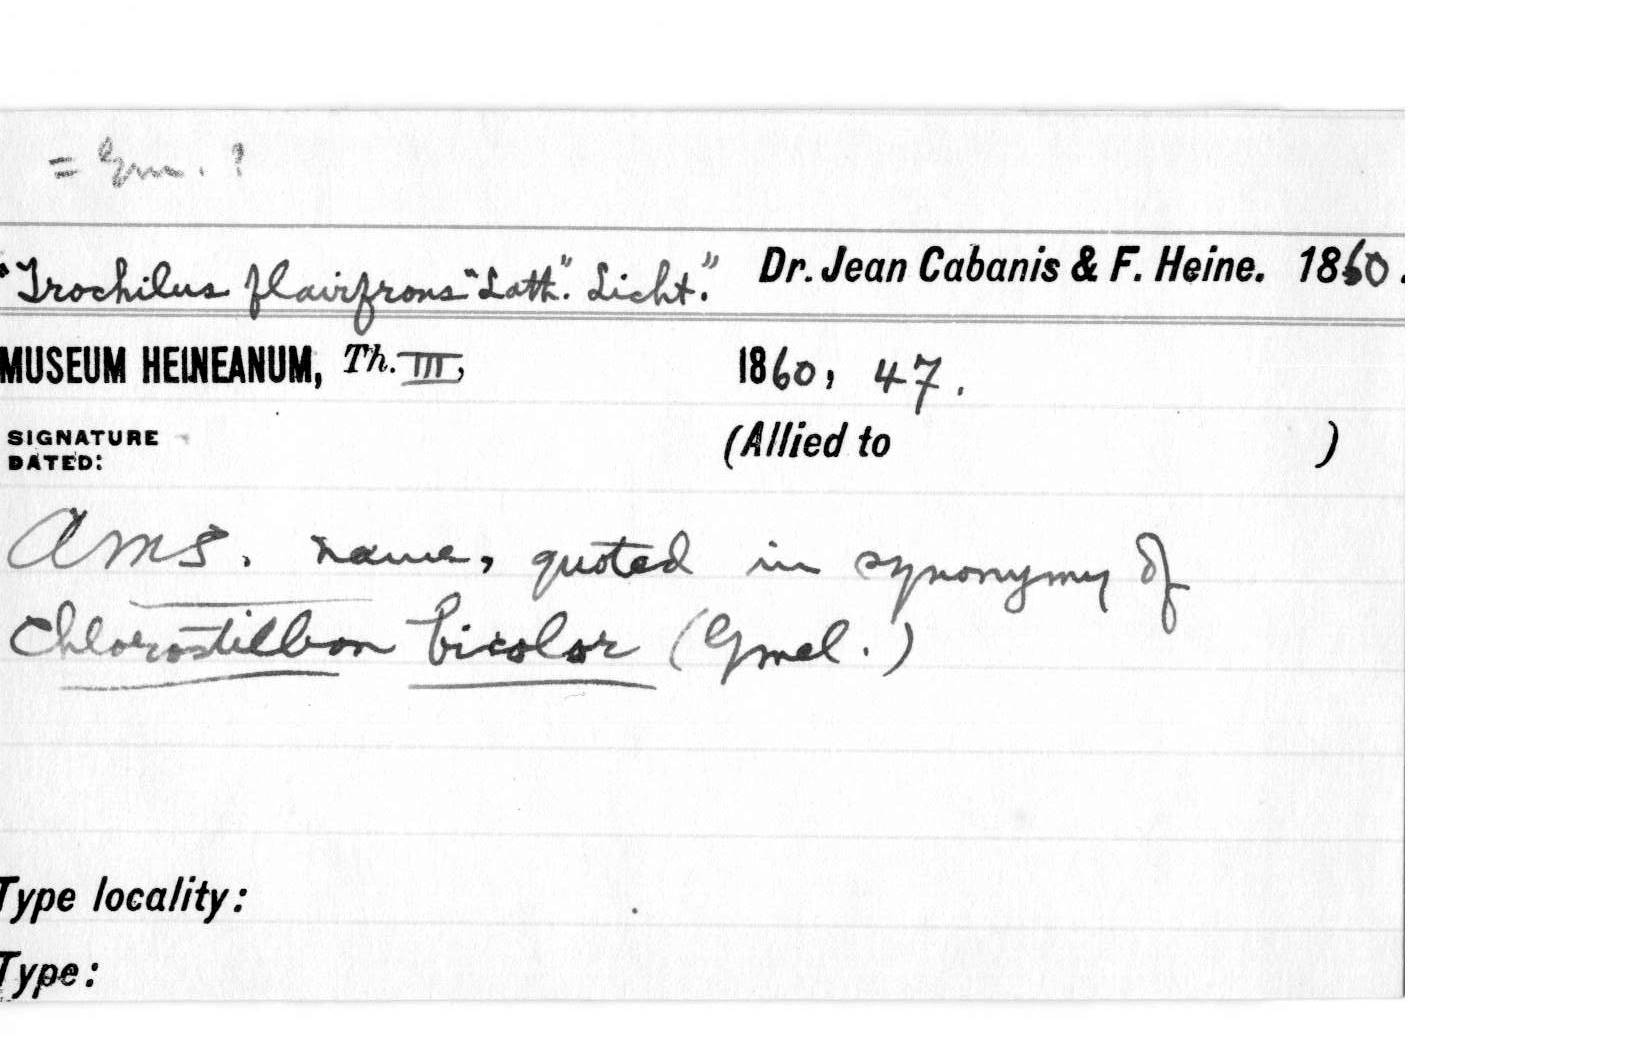 = Gm. ?
"Trochilus flavifrons "Lath". Licht." Dr. Jean Cabanis & F. Heine. 1860.
MUSEUM HEINEANUM, Th. III, 1860, 47.
SIGNATURE (Allied to )
DATED:
A MS. name, quoted in synonymy of
Chlorostilbon bicolor (Gmel.)
Type locality:
Type: